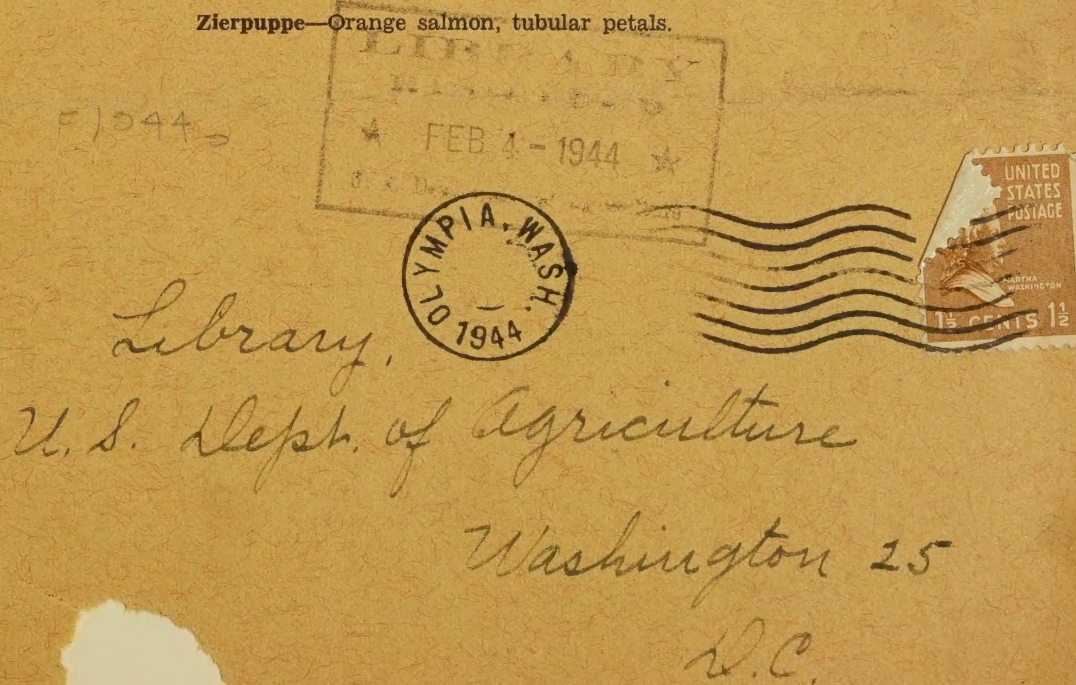 Zierpuppe—Orange salmon, tubular petals.
LIBRARY
★ FEB 4 - 1944 ★
OLYMPIA, WASH.
1944
UNITED
STATES
POSTAGE
MARTHA
WASHINGTON
1½ CENTS 1½
Library,
U. S. Dept. of Agriculture
Washington 25
D.C.